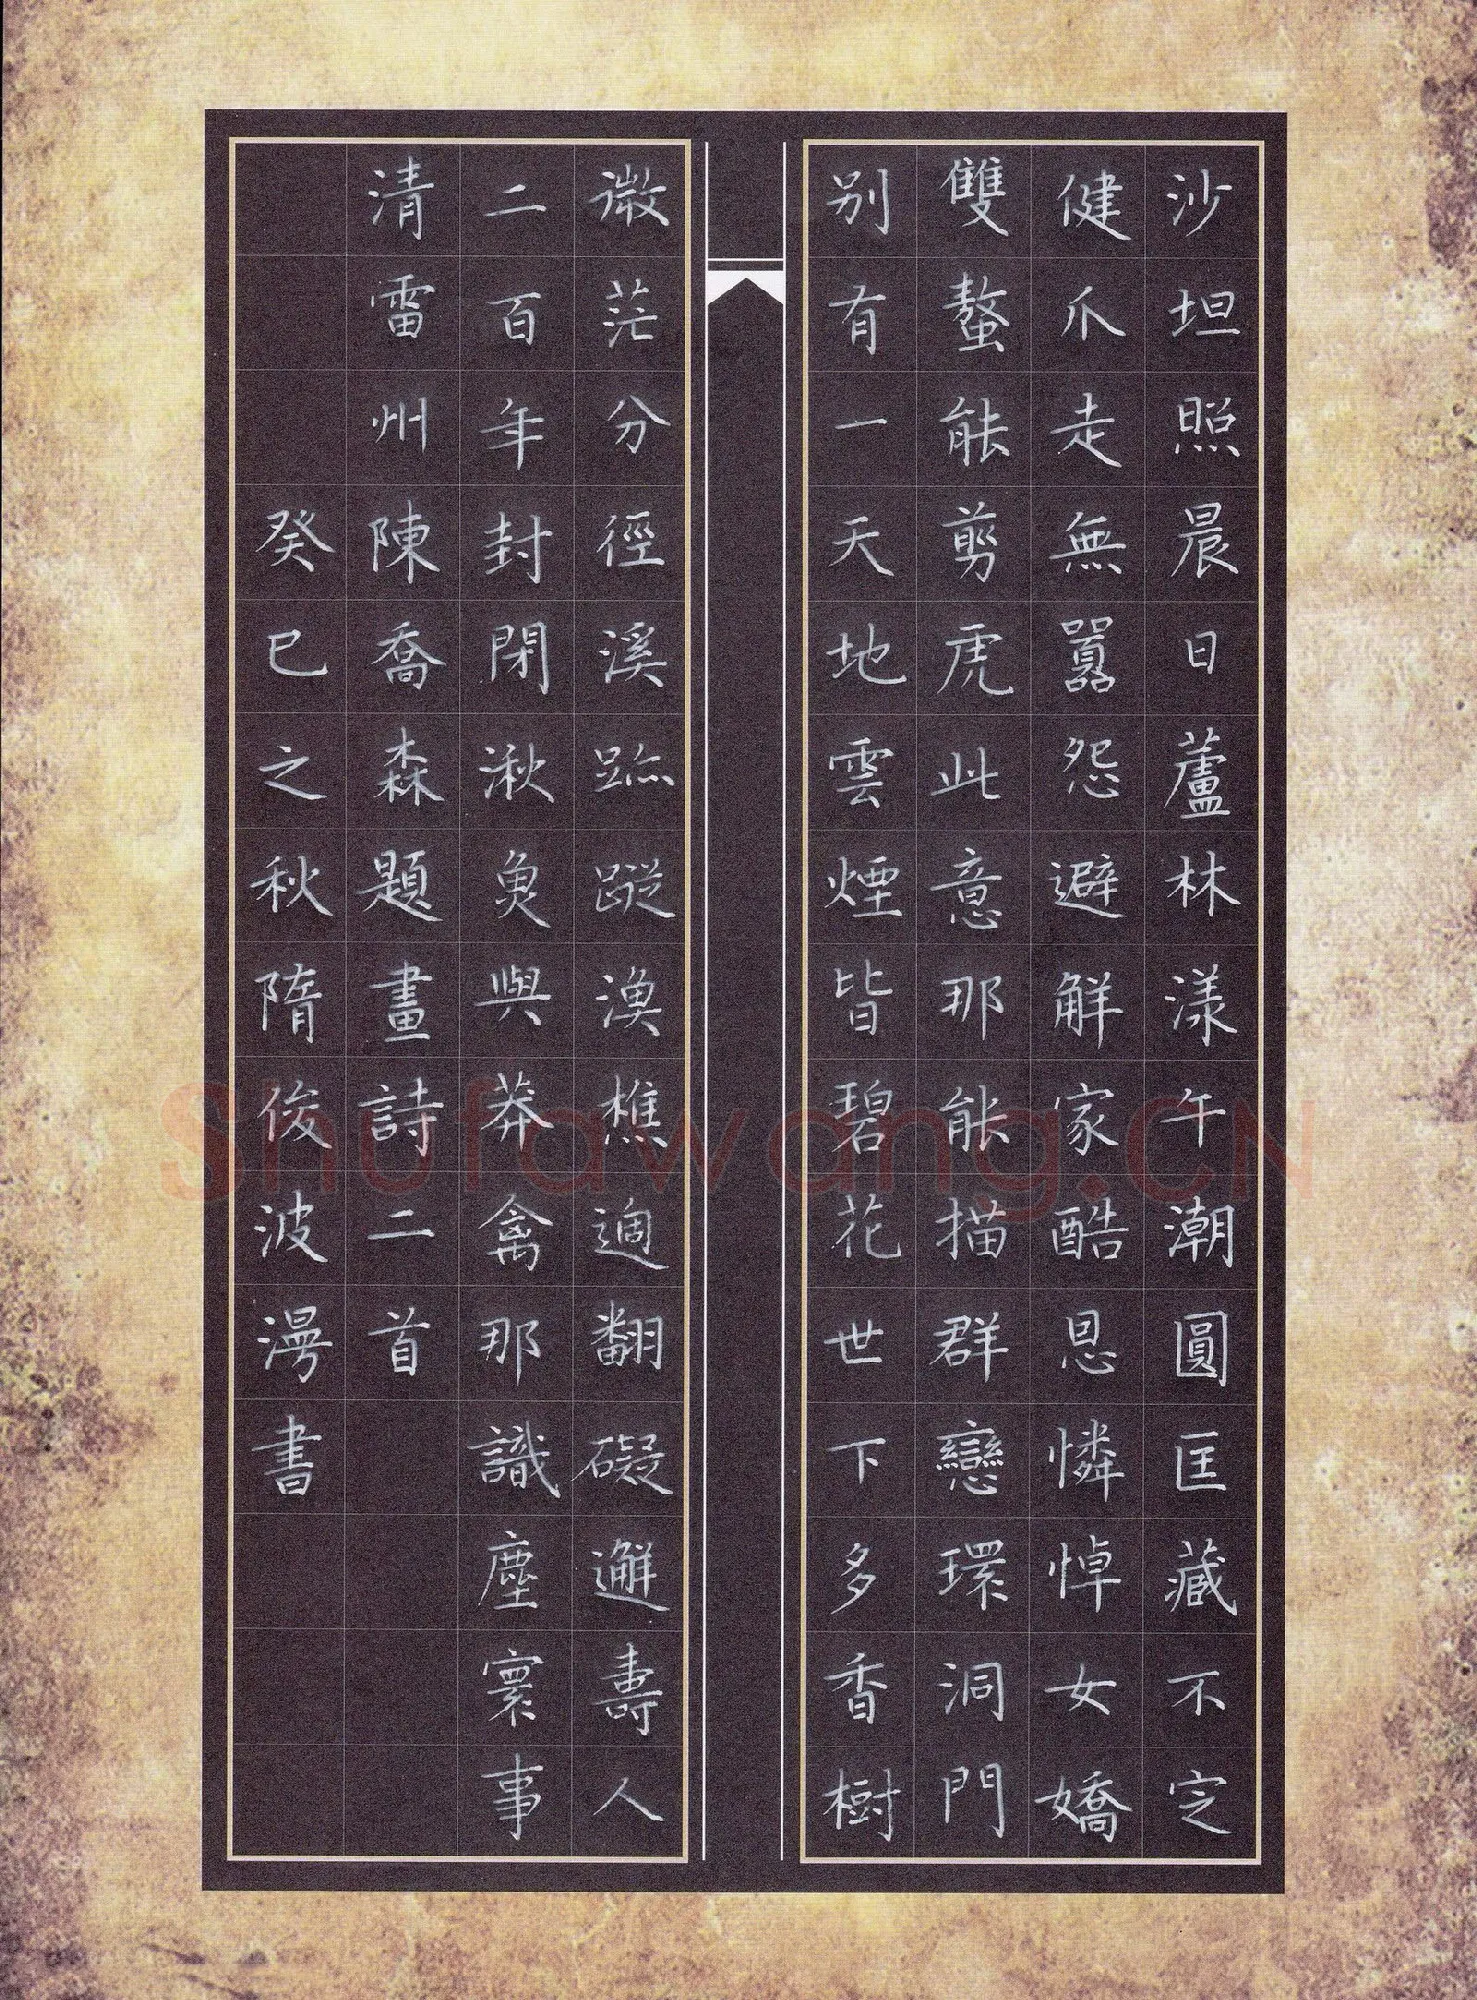 沙坦照晨日蘆林漾午潮圓匡藏不定
健爪走無囂怨避解家酷恩憐悼女嬌
雙螯能剪虎此意那能描群戀環洞門
别有一天地雲煙皆碧花世下多香樹
微茫分徑溪跡蹤漁樵適翻礙邂壽人
二百年封閉湫魚與莽禽那識塵寰事
清雷州陳喬森題畫詩二首
癸巳之秋隋俊波漫書
Shufawang.CN